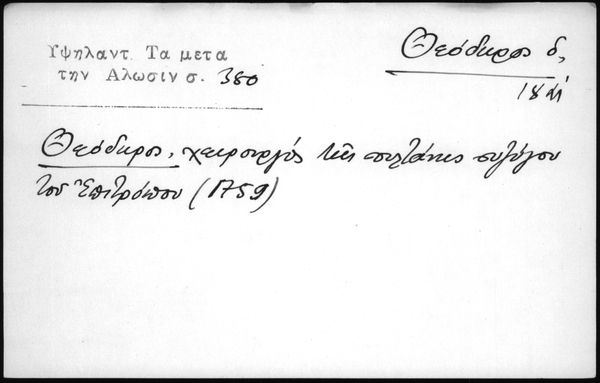 Υψηλαντ. Τα μετα
την Αλωσιν σ. 380
Θεόδωρος δ,
Θεόδωρος, χειρουργός της σουλτάνας συζύγου
του Επιτρόπου (1759)